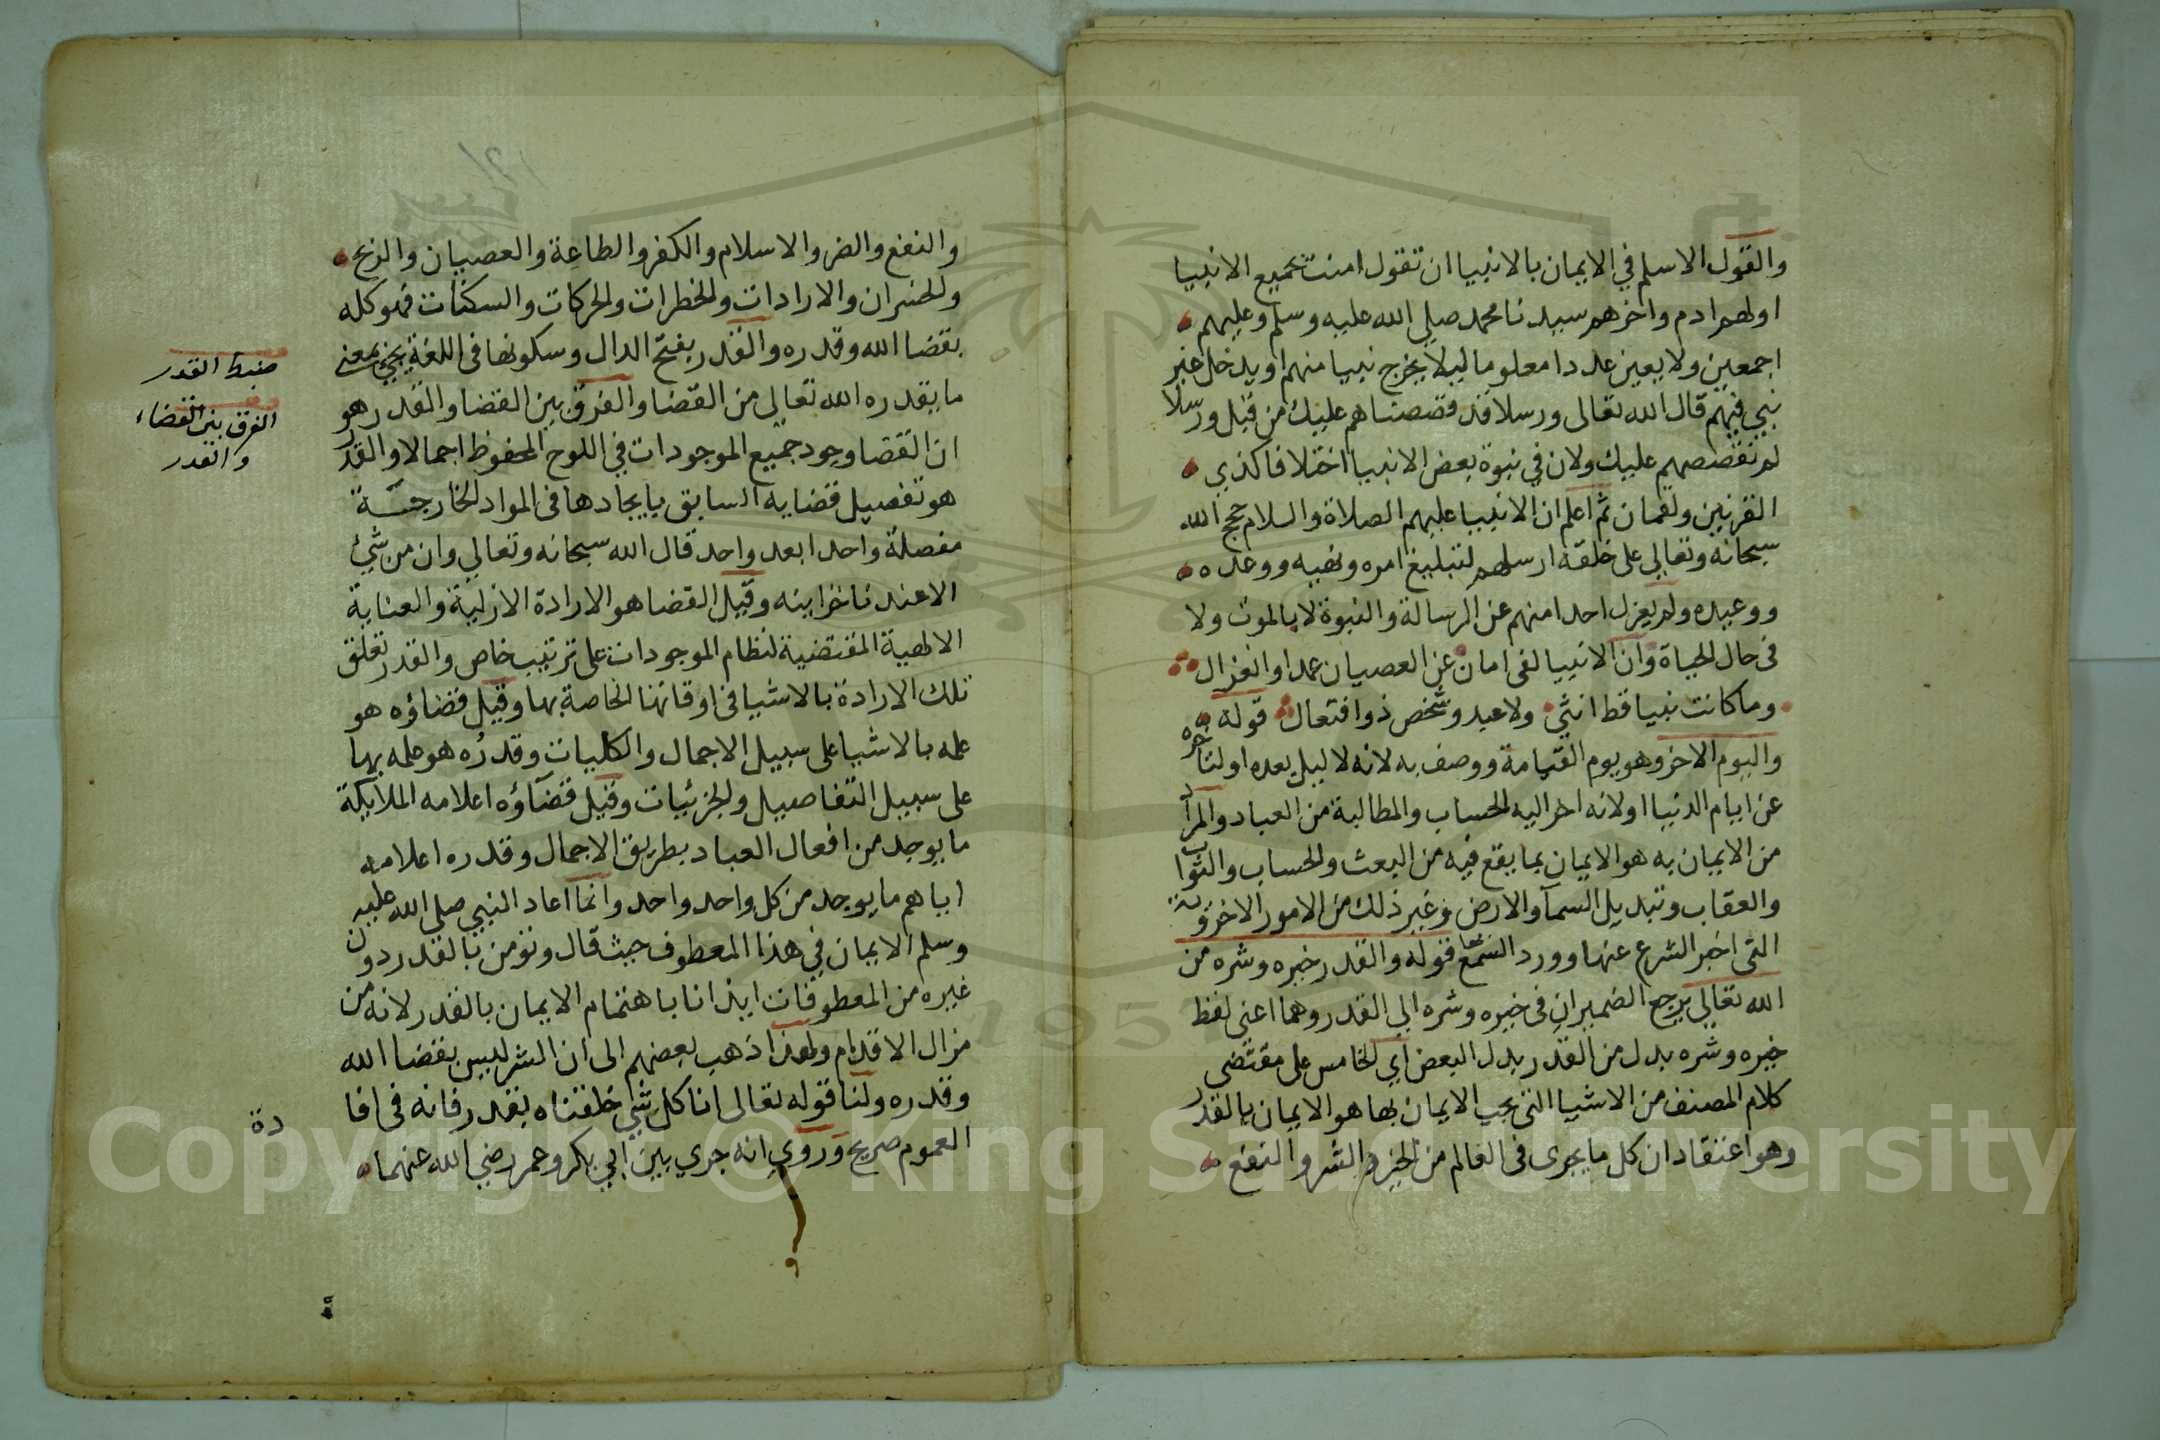 والقول الاسلم في الايمان بالانبيا ان تقول امنت بجميع الانبيا
اولهم ادم واخرهم سيدنا محمد صلي الله عليه وسلم وعليهم
اجمعين ولا يعين عددا معلوما ليلا يخرج نبيا منهم او يدخل غير
نبي فيهم قال الله تعالى ورسلا قد قصصناهم عليك من قبل ورسلا
لم نقصصهم عليك ولان في نبوة بعض الانبيا اختلافا كذي
القرنين ولقمان ثم اعلم ان الانبيا عليهم الصلاة والسلام حجج الله
سبحانه وتعالي على خلقه ارسلهم لتبليغ امره ونهيه ووعده
ووعيده ولم يعزل احدا منهم عن الرسالة والنبوة لا بالموت ولا
في حال الحياة وان الانبيا لفي امان عن العصيان عمدا وانعزال
وما كانت نبيا قط انثي ولا عبد وشخص ذو افتعال قوله
واليوم الاخر وهو يوم القيامة ووصف به لانه لا ليل بعده او لتاخره
عن ايام الدنيا او لانه اخر اليه الحساب والمطالبة من العباد والمراد
من الايمان به هو الايمان بما يقع فيه من البعث والحساب والثواب
والعقاب وتبديل السمآ والارض وغير ذلك من الامور الاخروية
التي اخبر الشرع عنها وورد السمع قوله والقدر خيره وشره من
الله تعالي يرجع الضميران في خيره وشره الي القدر وهما اعني لفظ
خيره وشره بدل من القدر بدل البعض اي الخامس على مقتضى
كلام المصنف من الاشيا التي يجب الايمان بها هو الايمان بالقدر
وهو اعتقاد ان كل ما يجرى في العالم من الخير والشر والنفع
والنفع والضر والاسلام والكفر والطاعة والعصيان والربح
والخسران والارادات والخطرات والحركات والسكنات فهو كله
بقضا الله وقدره والقدر بفتح الدال وسكونها في اللغة يجئ بمعنى
ما يقدره الله تعالي من القضا والفرق بين القضا والقدر هو
ان القضا وجود جميع الموجودات في اللوح المحفوظ اجمالا والقدر
هو تفصيل قضايه السابق بايجادها في المواد الخارجية
مفصلة واحدا بعد واحد قال الله سبحانه وتعالي وان من شئ
الا عندنا خزاينه وقيل القضا هو الارادة الازلية والعناية
الالهية المقتضية لنظام الموجودات على ترتيب خاص والقدر تعلق
تلك الارادة بالاشيا في اوقاتها الخاصة بها وقيل قضاؤه هو
علمه بالاشيا على سبيل الاجمال والكليات وقدره هو علمه بها
على سبيل التفاصيل والجزئيات وقيل قضاؤه اعلامه الملايكة
ما يوجد من افعال العباد بطريق الاجمال وقدره اعلامه
اياهم ما يوجد من كل واحد واحد وانما اعاد النبي صلي الله عليه
وسلم الايمان في هذا المعطوف حيث قال ونؤمن بالقدر دون
غيره من المعطوفات ايذانا باهتمام الايمان بالقدر لانه من
مزال الاقدام ولهذا ذهب بعضهم الى ان الشر ليس بقضا الله
وقدره ولنا قوله تعالى انا كل شئ خلقناه بقدر فانه في افا
دة
العموم صريح وروي انه جري بين ابي بكر وعمر رضي الله عنهما
ضبط القدر
الفرق بين القضاء
والقدر
1957
Copyright © King Saud University